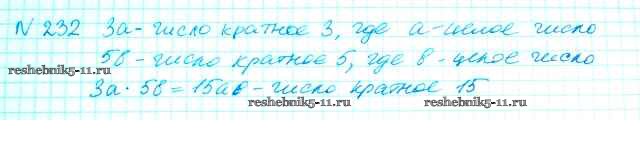 N 232 3a - число кратное 3, где a - целое число
5в - число кратное 5, где в - целое число
reshebnik5-11.ru
reshebnik5-11.ru
3a · 5в = 15aв - число кратное 15
reshebnik5-11.ru
reshebnik5-11.ru